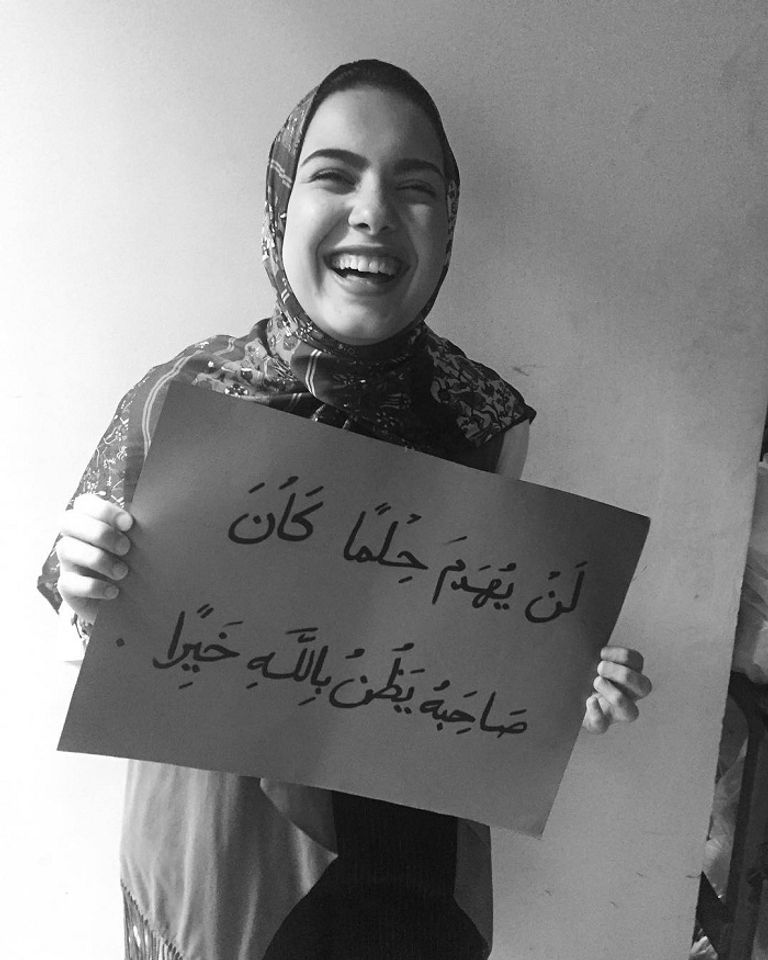 لَنْ يُهْدَمَ حِلْمًا كَانَ
صَاحِبَهُ يَظُنُ بِاللَّهِ خَيْرًا .